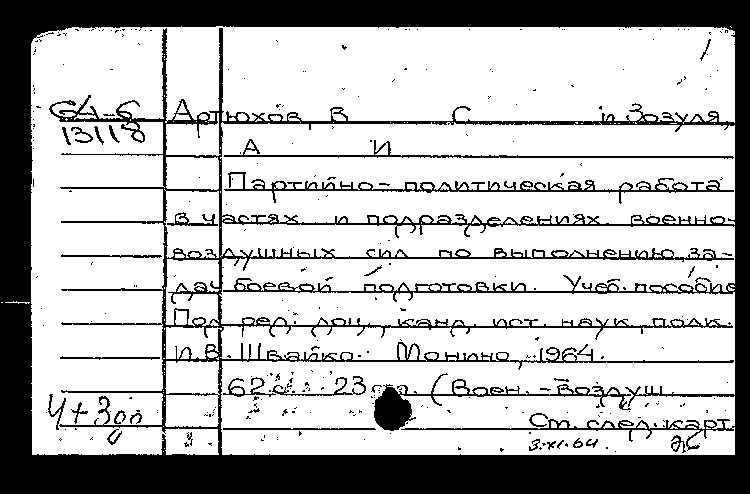 64-6
13118
Артюхов, В С и Зозуля,
А И
Партийно-политическая работа
в частях и подразделениях военно-
воздушных сил по выполнению за-
дач боевой подготовки. Учеб. пособие
Под ред. доц., канд. ист. наук, полк.
П.В. Швайко. Монино, 1964.
62 с. 23 см. (Воен.-воздуш.
Ч+3оо
См. след. карт.
3.XI.64.